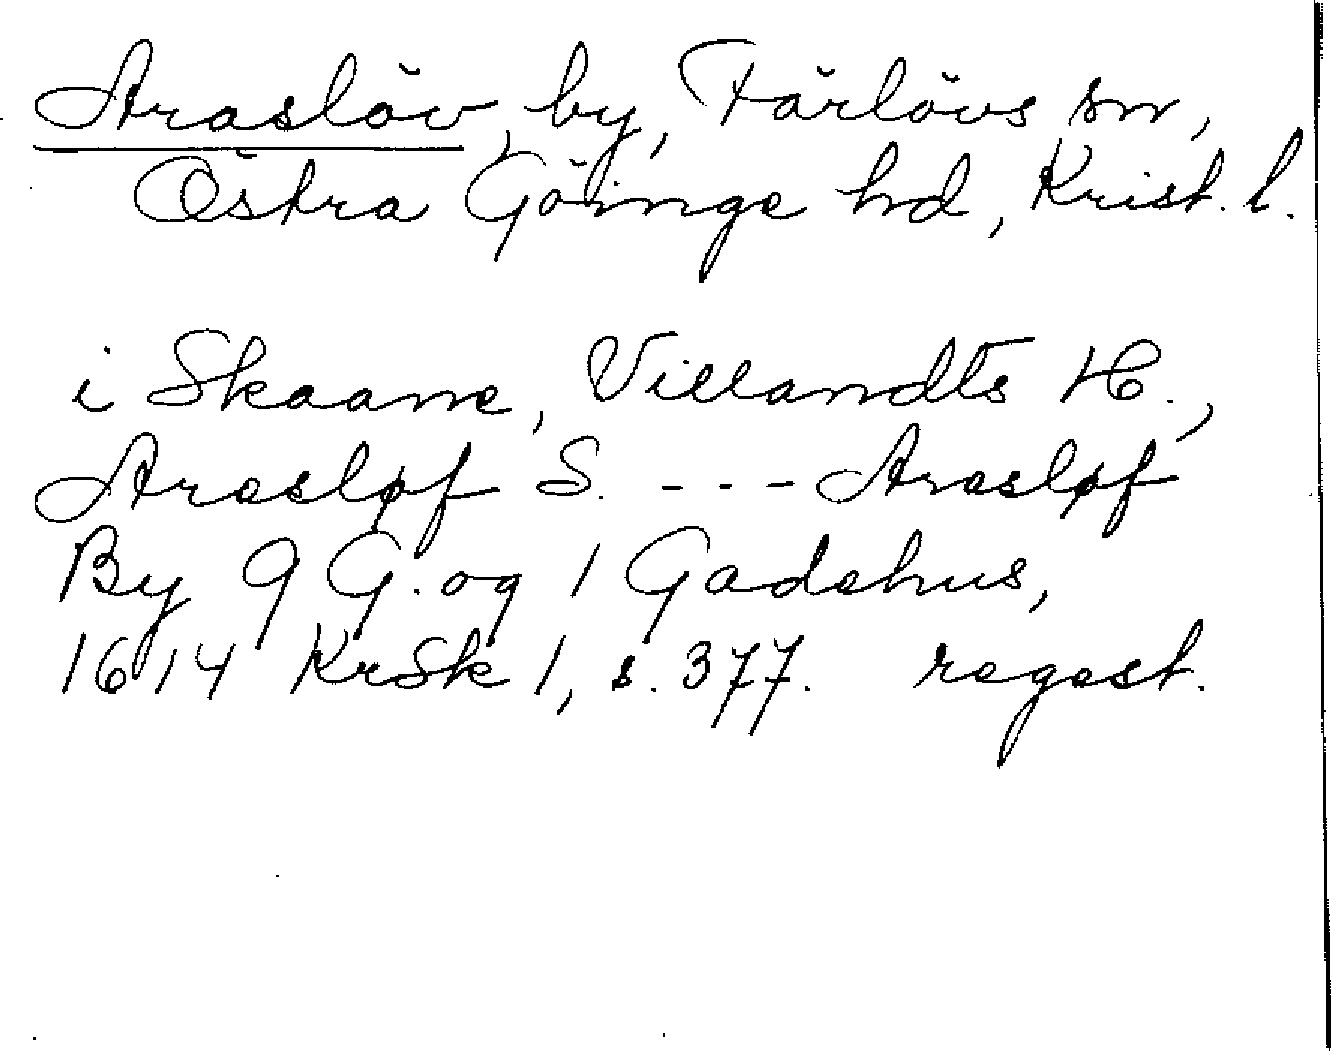 Araslöv, by, Färlövs sn,
Östra Göinge hd, Krist. l.
i Skaane, Villandts H.,
Arasløf S. - - - Arasløf
By 9 G. og 1 Gadehus,
1614 KrSk 1, s. 377. regest.